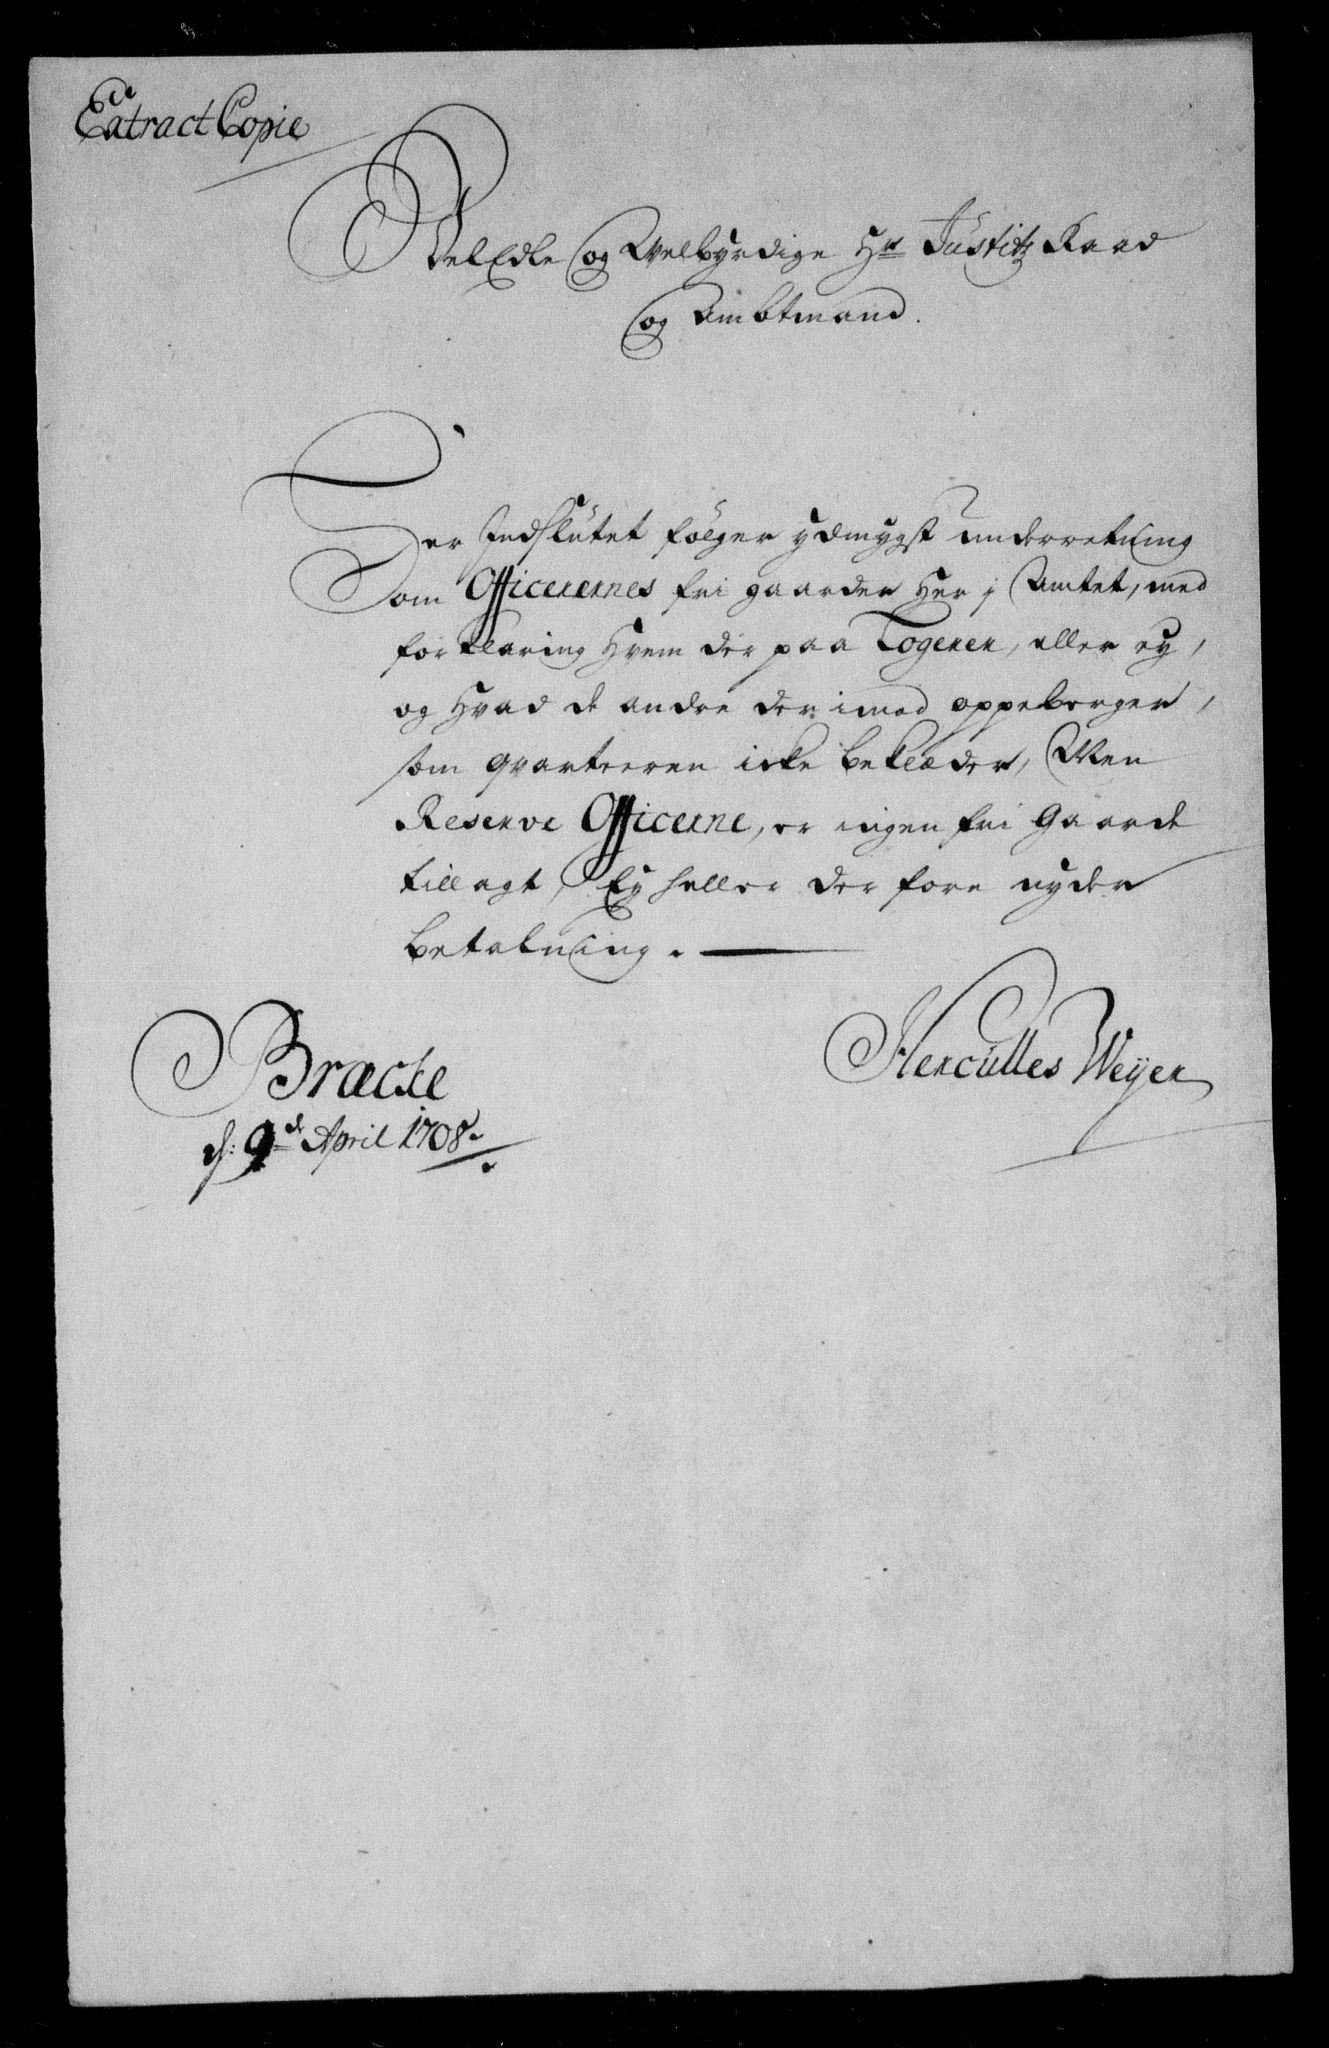 Extract Copie
VelEdle og Welbyrdige Hr Justitz Raad
og Ambtmand.
Her Indslutet følger ydmygst underretning
om Officerernes fri gaarder her j Amtet, med
forklaring hvem der paa Logerer, eller ey,
og hvad de andre der imod oppeberger,
som qvarteeren icke beklæder, Men
Reserve Officerne, er ingen fri Gaarde
tillagt, Ey heller der fore nyder
betalning.
Hercules Weyer
Bracke
d: 9de April 1708.